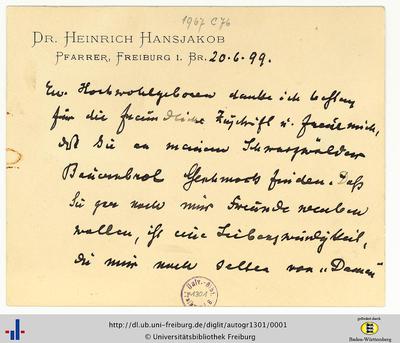 1967 C 76
DR. HEINRICH HANSJAKOB
PFARRER, FREIBURG I. BR. 20.6.99.
Ew. Hochwohlgeboren danke ich bestens
für die freundliche Zuschrift u. freue mich,
daß Sie an meinem Schwarzwälder
Bauernbrot Geschmack finden. Daß
Sie gar noch mir Freunde werben
wollen, ist eine Liebenswürdigkeit,
die mir noch selten von „Damen"
1301
http://dl.ub.uni-freiburg.de/diglit/autogr1301/0001
© Universitätsbibliothek Freiburg
gefördert durch
Baden-Württemberg